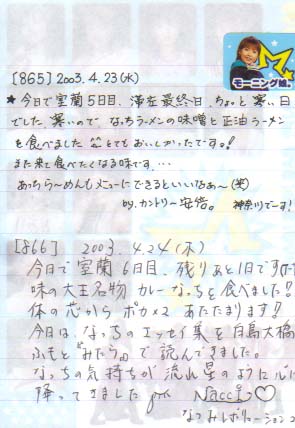 モーニング娘。
[865] 2003.4.23(水)
★今日で室蘭5日目、滞在最終日、ちょっと寒い日
でした。寒いので、なっちラーメンの味噌と正油ラーメン
を食べました とてもおいしかったです。!
また来て食べたくなる味です...
あっちら〜めんもメニューにできるといいなあ〜(笑)
by.カントリー安倍。 神奈川でーす!
[866] 2003.4.24(木)
今日で室蘭6日目、残りあと1日です
味の大王名物 カレーなっちを食べました!
体の芯からポカポカ あたたまります!!
今日は、なっちのエッセイ集を白鳥大橋
ふもと"みたら"で読んできました。
なっちの気持ちが流れ星のように心に
降ってきました Nacci♡
なつみレボリューション